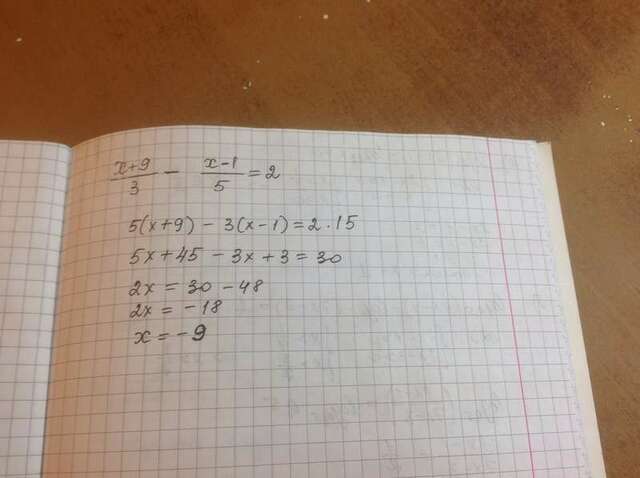 x+9/3 − x−1/5 = 2
5(x+9) − 3(x−1) = 2·15
5x+45 − 3x+3 = 30
2x = 30 − 48
2x = −18
x = −9